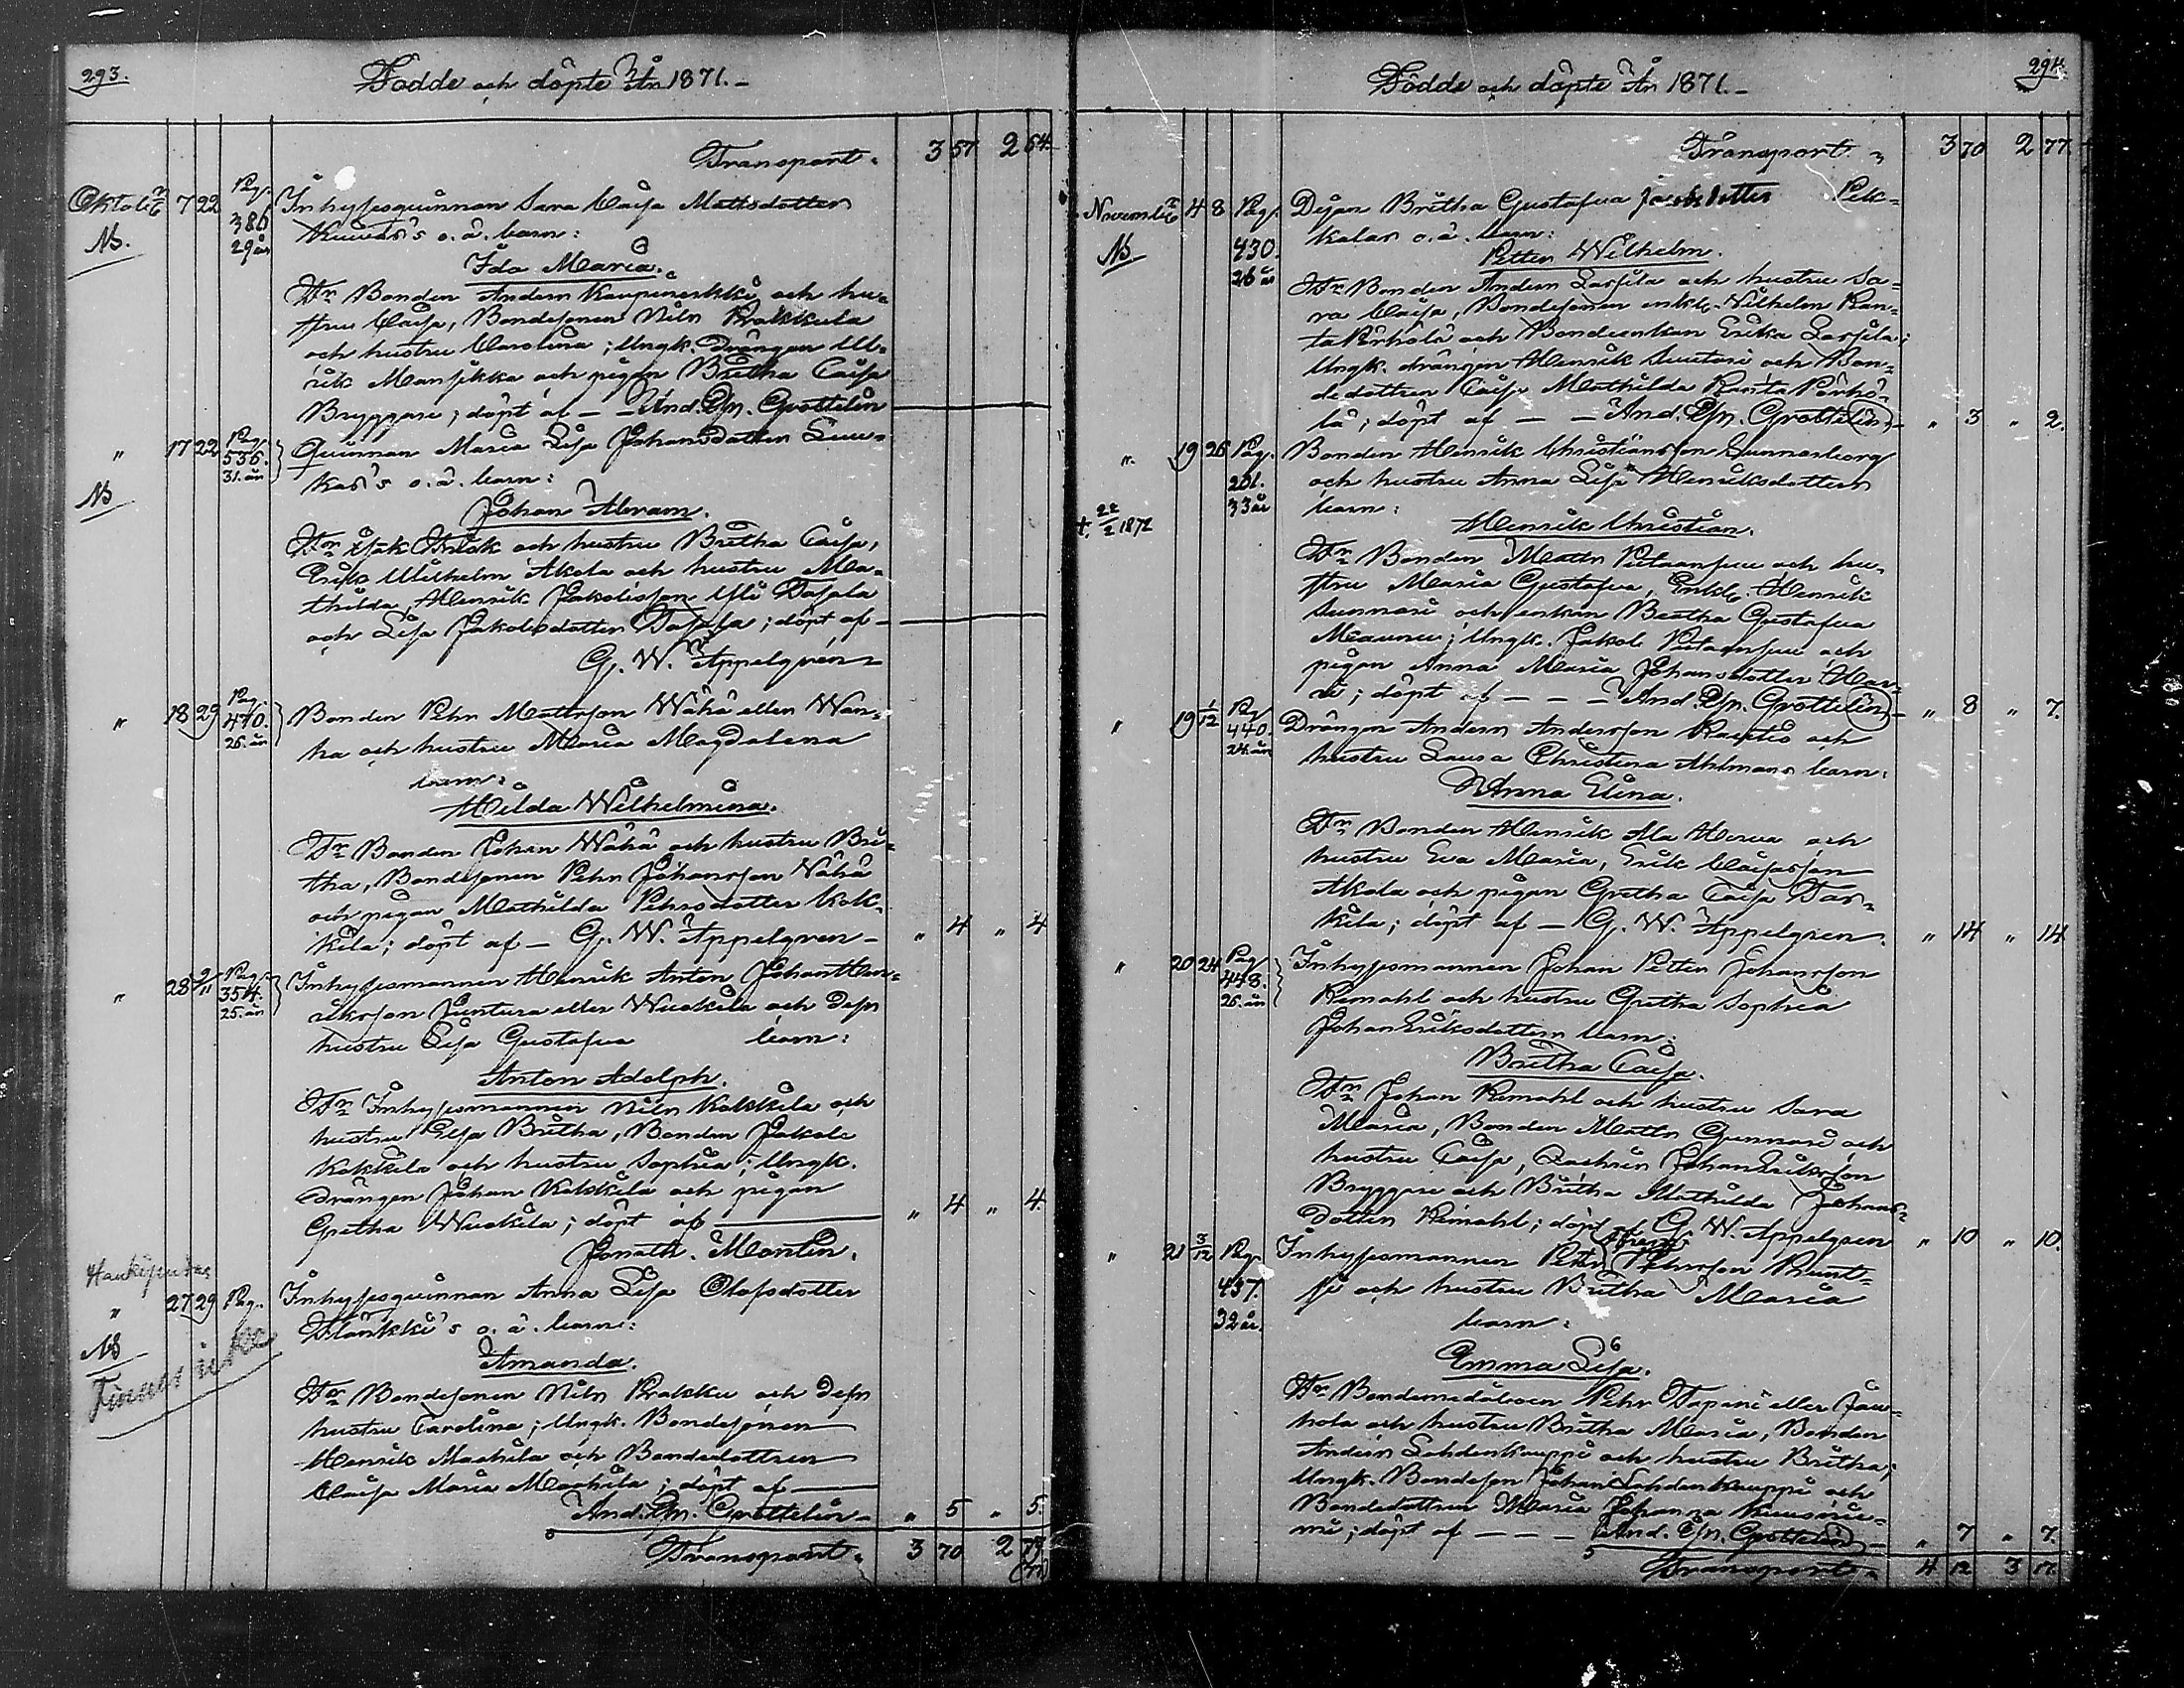 293.
Födde och döpte År 1871.-
Transport. 3 57 2 64.
Oktob. 7 22 Pag. 386 29 år Inhysesqvinnan Sara Caisa Mattsdotter
NB. o.ä. barn:
Ida Maria.
Fr. Bonden Anders och hu-
stru Caisa, Bondesonen Nils Prokkula
och hustru Carolina; Ungk. drängen Ul-
rik Mansikka och pigan Britha Caisa
Bryggare; döpt af — And. Gottelin
" 17 22 Pag. 536. 31. år Quinnan Maria Lisa Johansdotter Luu-
NB kas's o.ä. barn:
Johan Abram.
Fr. Isak Frisk och hustru Britha Caisa,
Erik Wilhelm Akola och hustru Ma-
thilda, Henrik Jakobsson Yli Tapala
och Lisa Jakobsdotter Tapala; döpt af —
G. W. Appelgren
" 18 29 Pag. 470. 26. år Bonden Pehr Mattsson Wähä eller Wan-
ha och hustru Maria Magdalena
barn:
Hilda Wilhelmina.
Fr. Bonden Johan Wähä och hustru Bri-
tha, Bondesonen Pehr Johansson Wähä
och pigan Mathilda Pehrsdotter Kok-
kila; döpt af — G. W. Appelgren — " 4 " 4
" 28 2/11 Pag. 354. 25. år Inhysesmannen Henrik Anton Johan Hen-
riksson Juntura eller Wuokila och dess
hustru Lisa Gustafva barn:
Anton Adolph.
Fr. Inhysesmannen Nils Kokkila och
hustru Lisa Britha, Bonden Jakob
Kokkila och hustru Sophia; Ungk.
drängen Johan Kokkila och pigan
Gretha Wuokila; döpt af — " 4 " 4.
Jonath. Montin.
Haukipudas
" 27 29 Pag. Inhysesqvinnan Anna Lisa Olofsdotter
NB o.ä. barn:
Finnes icke
Amanda.
Fr. Bondesonen Nils Prokku och dess
hustru Carolina; Ungk. Bondesonen
Henrik Mackila och Bondedottren
Caisa Maria Mackila; döpt af —
And. Gottelin — " 5 " 5.
Transport. 3 70 2 77
294.
Födde och döpte År 1871.-
Transport. 3 70 2 77.
Novemb. 4 8 Pag. 430. 26 år Dejan Britha Gustafva Jacobsdotter Pik-
NB kalas o.ä. barn:
Petter Wilhelm.
Fr. Bonden Anders Lassila och hustru Sa-
ra Caisa, Bondesonen enkl. Wilhelm Ran-
ta Pörhölä och Bondeenkan Erika Lassila;
Ungk. drängen Henrik Suutari och Bon-
dedottren Caisa Mathilda Ranta Pörhö-
lä; döpt af — — And. Gottelin — " 3 " 2.
" 19 26 Pag. 201. 33 år Bonden Henrik Christiansson Gunnarborg
och hustru Anna Lisa Henriksdotters
+ 22/2 1872 barn:
Henrik Christian.
Fr. Bonden Matts Pietarinsuu och hu-
stru Maria Gustafva, Enkl. Henrik
Sunnari och enkan Britha Gustafva
Maunu; Ungk. Jakob och
pigan Anna Maria Johansdotter Har-
ri; döpt af — — — And. Gottelin — " 8 " 7.
" 19 1/12 Pag. 440. 24 år Drängen Anders Andersson Rautio och
hustru Lovisa Christina Ahlmans barn:
Anna Elina.
Fr. Bonden Henrik Ala Herva och
hustru Eva Maria, Erik Caisasson
Akola och pigan Gretha Caisa Tas-
kila; döpt af — G. W. Appelgren. " 14 " 14
" 20 24 Pag 448. 26. år Inhysesmannen Johan Petter Johansson
Remahl och hustru Gretha Sophia
Johan Eriksdotters barn:
Britha Caisa.
Fr. Johan Remahl och hustru Sara
Maria, Bonden Matts Gunnari och
hustru Caisa, Zachris Johan Eriksson
Bryggare och Britha Mathilda Johans-
dotter Remahl; döpt af G. W. Appelgren " 10 " 10.
" 21 3/12 Pag. 437. 32 år. Inhysesmannen Petter Pehrsson Prunt-
si och hustru Britha Maria
barn:
Emma Lisa.
Fr. Bondemedåboen Pehr Tapani eller Jau-
hola och hustru Britha Maria, Bonden
Anders Lohdenkauppi och hustru Britha;
Ungk. Bondeson Johan Lohdenkauppi och
Bondedottren Maria Johanna Kuusinie-
mi; döpt af — — — And. Gottelin — " 7 " 7.
Transport. 4 12 3 17.